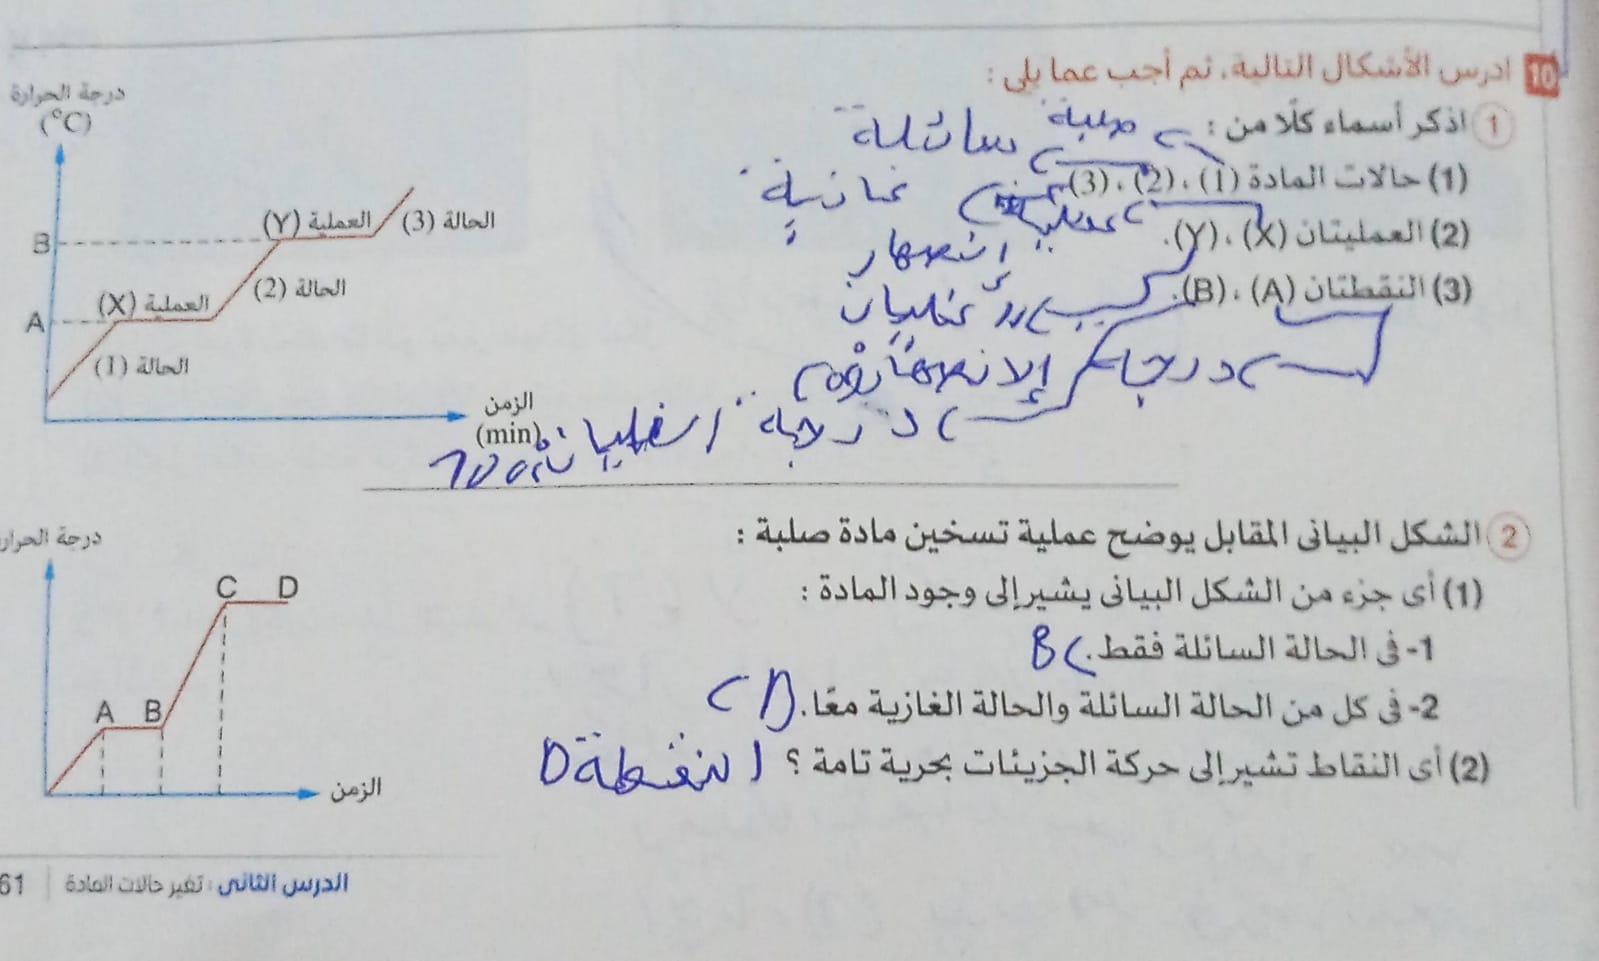 10 ادرس الأشكال التالية، ثم أجب عما يلى :
1 اذكر أسماء كلًا من : صلبة سائلة
(1) حالات المادة (1)، (2)، (3). غازية
(2) العمليتان (X)، (Y). عملية إنصهار
(3) النقطتان (A)، (B). غليان
درجة الإنصهار
درجة الغليان
درجة الحرارة
(°C)
B
العملية (Y)
الحالة (3)
الحالة (2)
A
العملية (X)
الحالة (1)
الزمن
(min)
2 الشكل البيانى المقابل يوضح عملية تسخين مادة صلبة :
(1) أى جزء من الشكل البيانى يشير إلى وجود المادة :
1- فى الحالة السائلة فقط. BC
2- فى كل من الحالة السائلة والحالة الغازية معًا. CD
(2) أى النقاط تشير إلى حركة الجزيئات بحرية تامة ؟ النقطة D
درجة الحرار
C D
A B
الزمن
الدرس الثانى : تغير حالات المادة 61